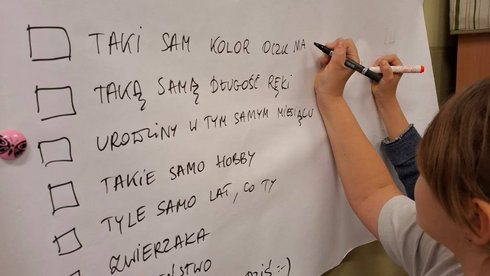 TAKI SAM KOLOR OCZU MA
TAKĄ SAMĄ DŁUGOŚĆ RĘKI
URODZINY W TYM SAMYM MIESIĄCU
TAKIE SAMO HOBBY
TYLE SAMO LAT, CO TY
ZWIERZAKA
DZIŚ :-)